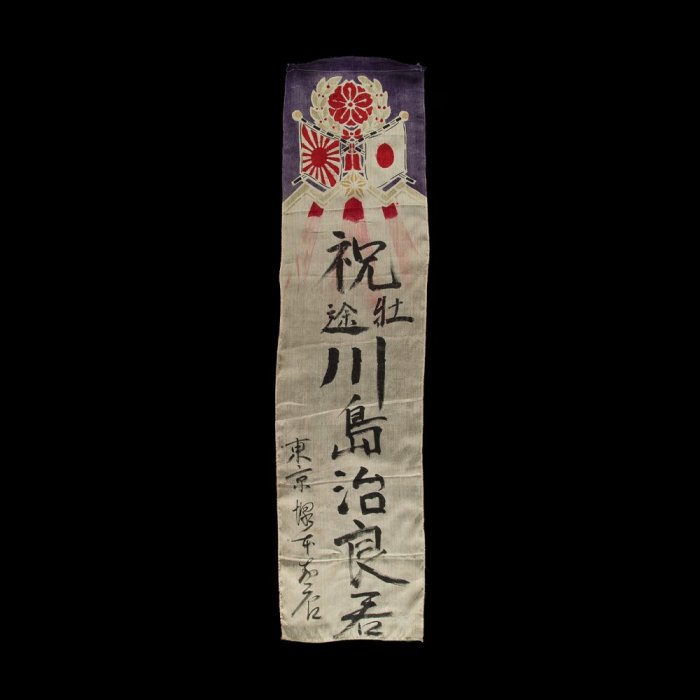 祝
壯途
川島治良君
東京